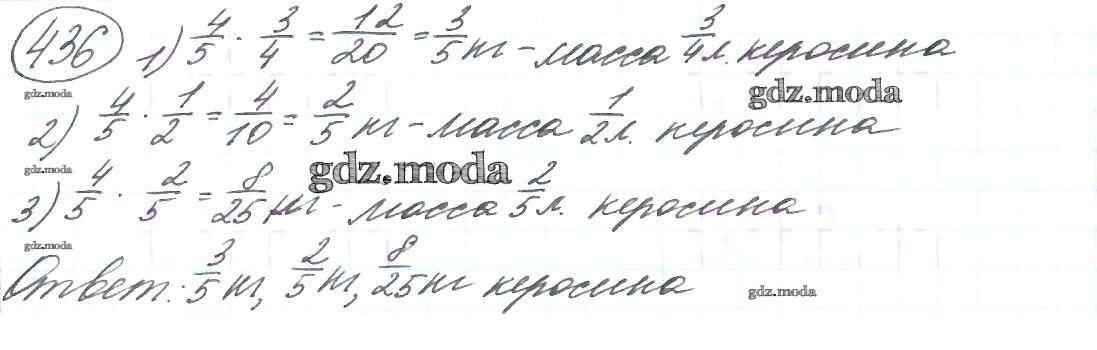 436 1) 4/5 · 3/4 = 12/20 = 3/5 кг - масса 3/4 л. керосина
gdz.moda
gdz.moda
2) 4/5 · 1/2 = 4/10 = 2/5 кг - масса 1/2 л. керосина
gdz.moda
gdz.moda
3) 4/5 · 2/5 = 8/25 кг - масса 2/5 л. керосина
gdz.moda
Ответ: 3/5 кг, 2/5 кг, 8/25 кг керосина
gdz.moda